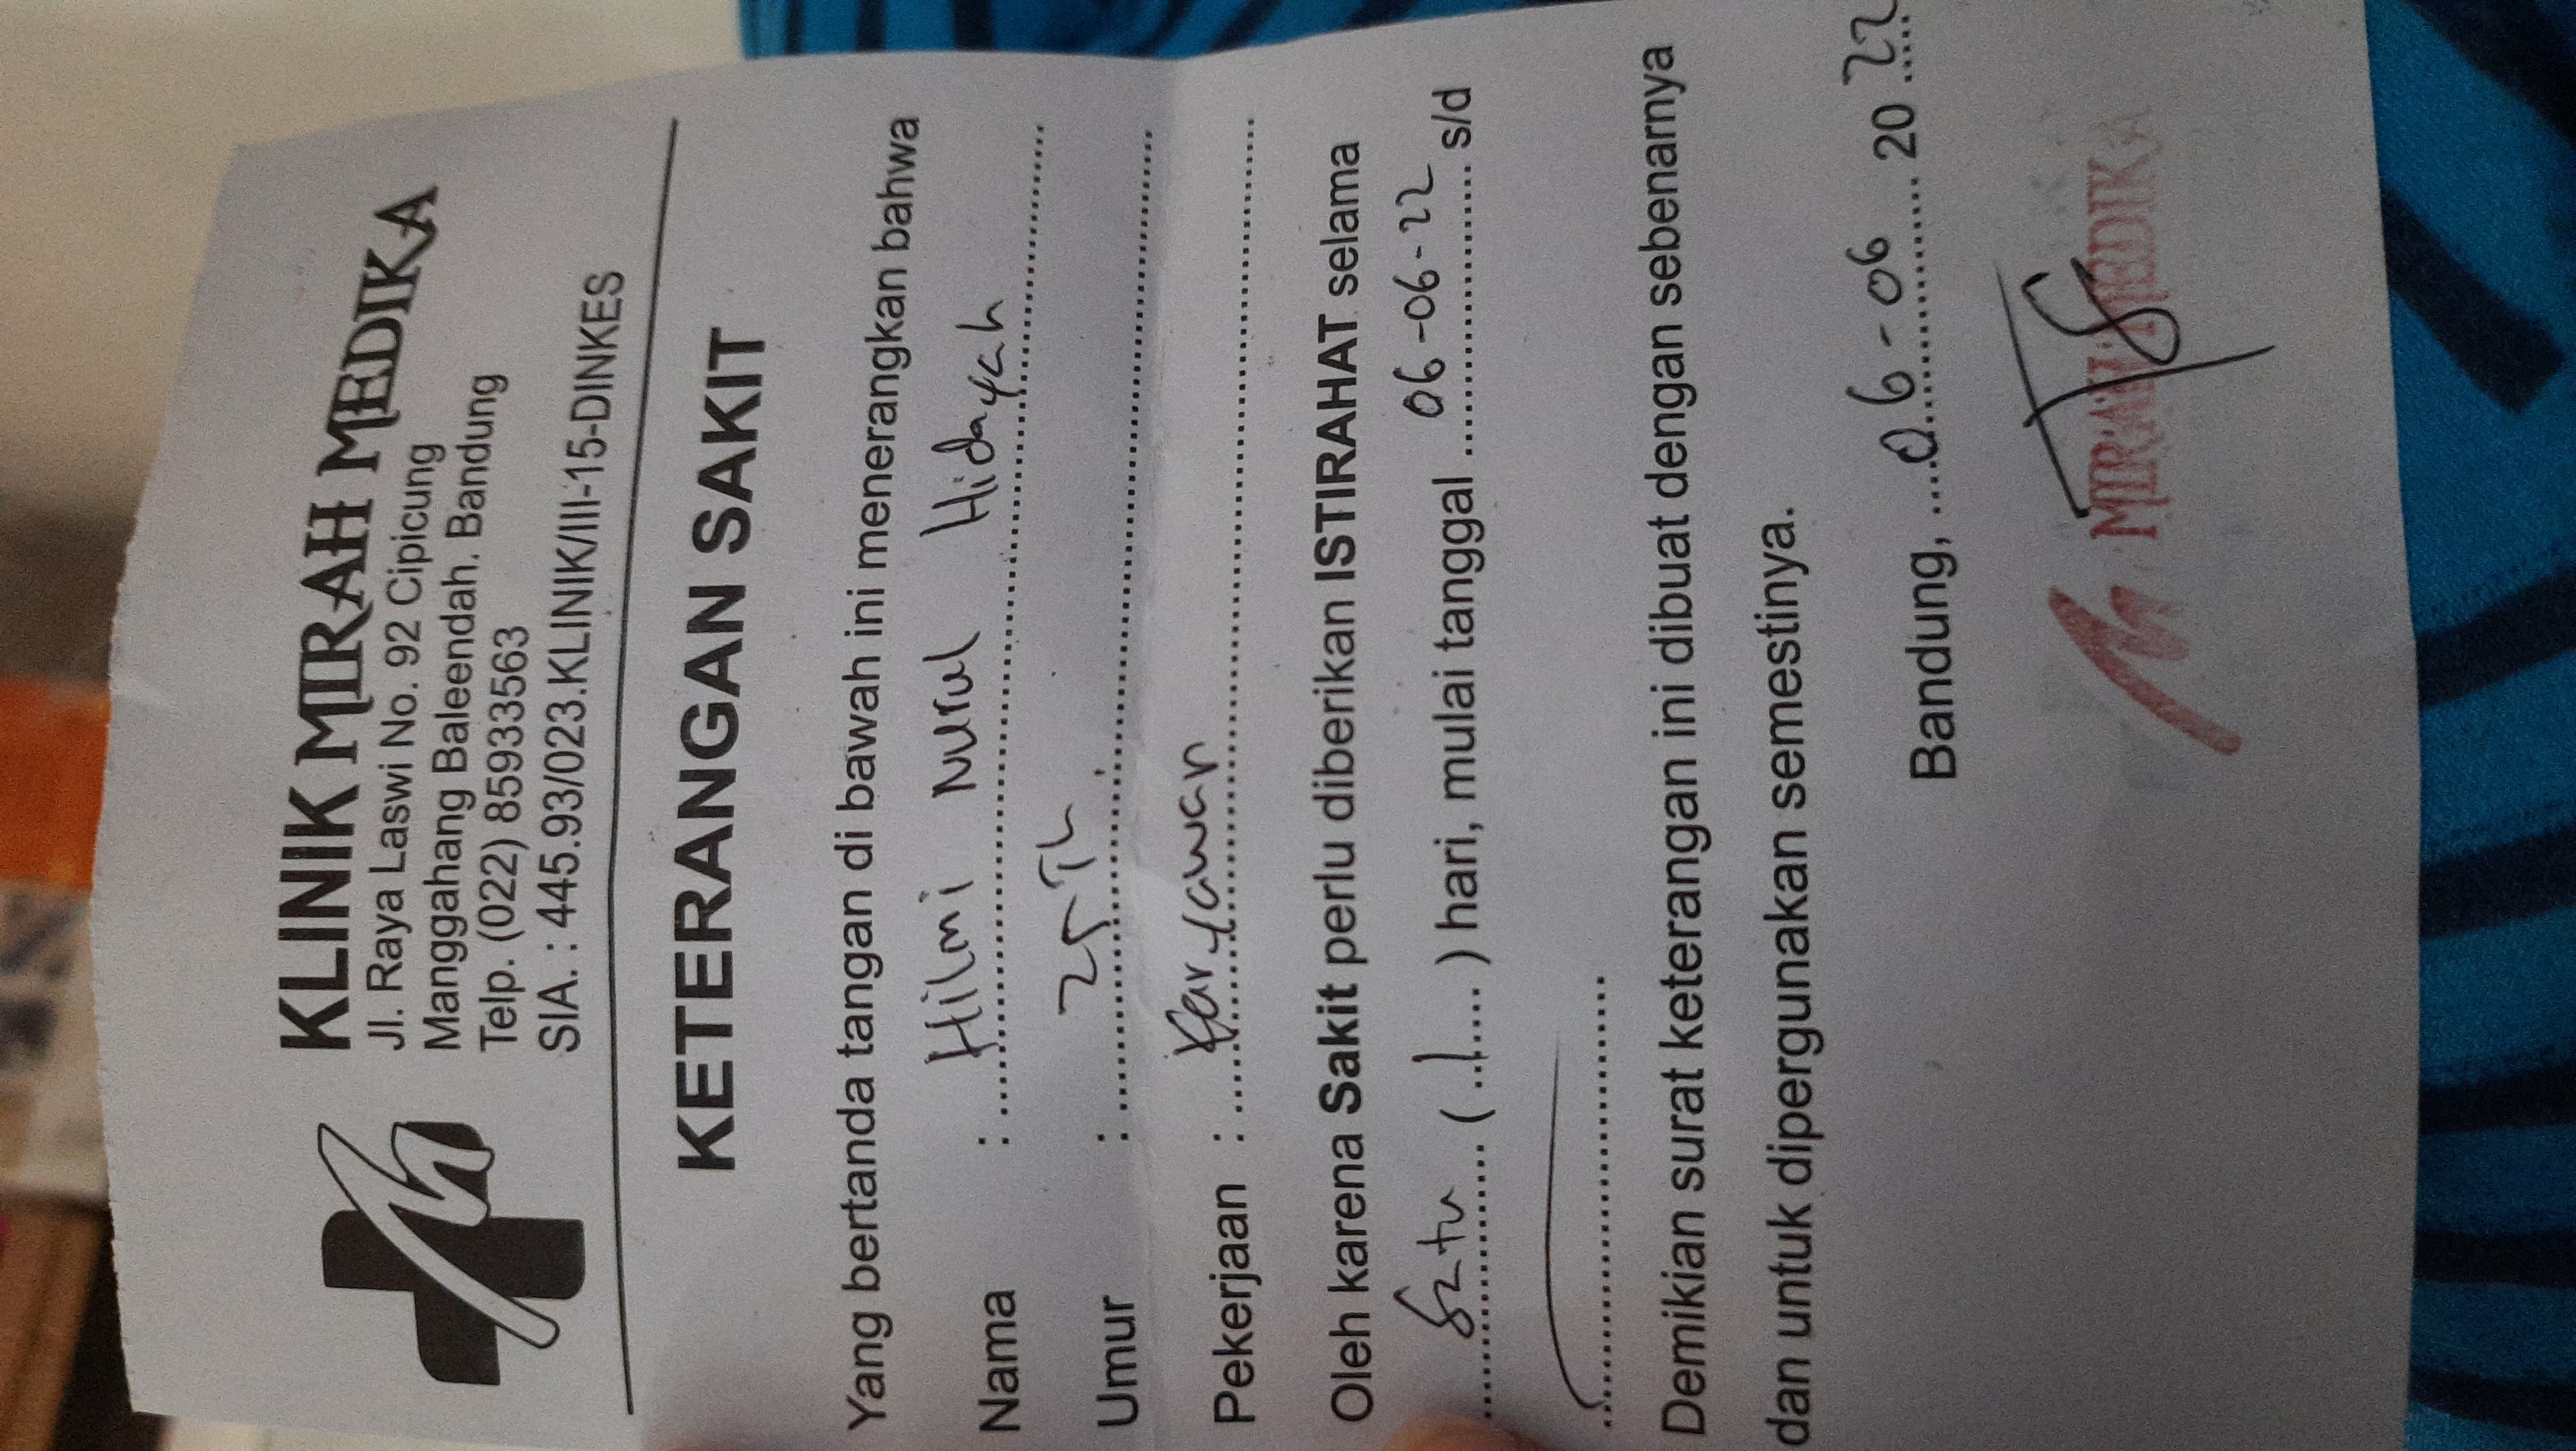 KLINIK MIRAH MEDIKA
Jl. Raya Laswi No. 92 Cipicung
Manggahang Baleendah. Bandung
Telp. (022) 85933563
SIA. : 445.93/023.KLINIK/III-15-DINKES
KETERANGAN SAKIT
Yang bertanda tangan di bawah ini menerangkan bahwa
Nama : Hilmi Nurul Hidayah
Umur : 25 Th
Pekerjaan : Karyawan
Oleh karena Sakit perlu diberikan ISTIRAHAT selama
Satu ( 1 ) hari, mulai tanggal 06-06-22 s/d
Demikian surat keterangan ini dibuat dengan sebenarnya
dan untuk dipergunakan semestinya.
Bandung, 06-06 2022
MIRAH MEDIKA